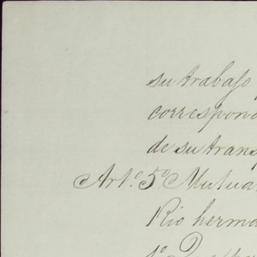 su trabajo
correspond
de su trans
Art.º 5º Mutua
Rio hermo
1º